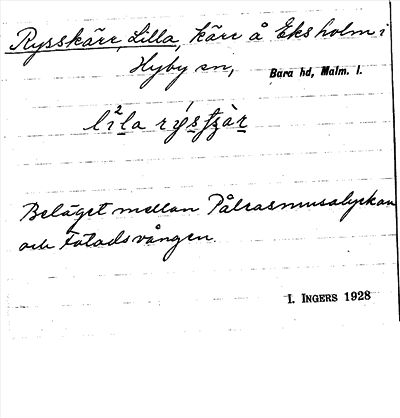 Rysskärr, Lilla, kärr å Eksholm i
Hyby sn, Bara hd, Malm. l.
Beläget mellan Pålrasmusalyckan
och Fotadsvången.
I. INGERS 1928